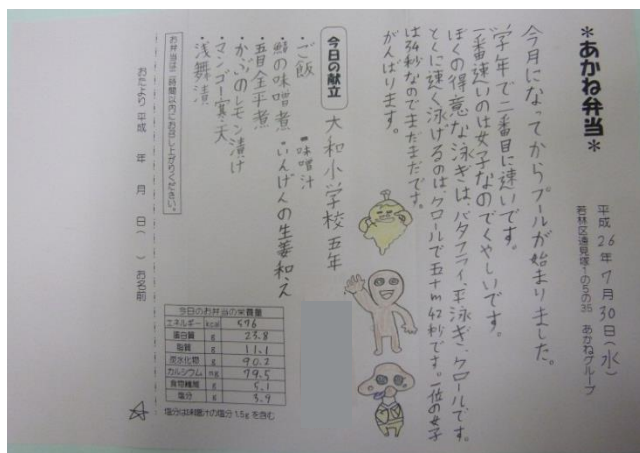 *あかね弁当*
平成26年7月30日(水)
若林区遠見塚1の5の35 あかねグループ
今月になってからプールが始まりました。
学年で二番目に速いです。
一番速いのは女子なのでくやしいです。
ぼくの得意な泳ぎは、バタフライ、平泳ぎ、クロールです。
とくに速く泳げるのは、クロールで五十m42秒です。一位の女子
は34秒なのでまだまだです。
がんばります。
今日の献立
大和小学校五年
・ご飯 ・味噌汁
・鯖の味噌煮・いんげんの生姜和え
・五目金平煮
・かぶのレモン漬け
・マンゴー寒天
・浅舞漬
お弁当は二時間以内にお召し上がりください。
今日のお弁当の栄養量
エネルギー kcal 596
蛋白質 g 23.8
脂質 g 11.1
炭水化物 g 90.2
カルシウム mg 79.5
食物繊維 g 5.1
塩分 g 3.9
塩分は味噌汁の塩分1.5gを含む
おたより 平成 年 月 日( ) お名前